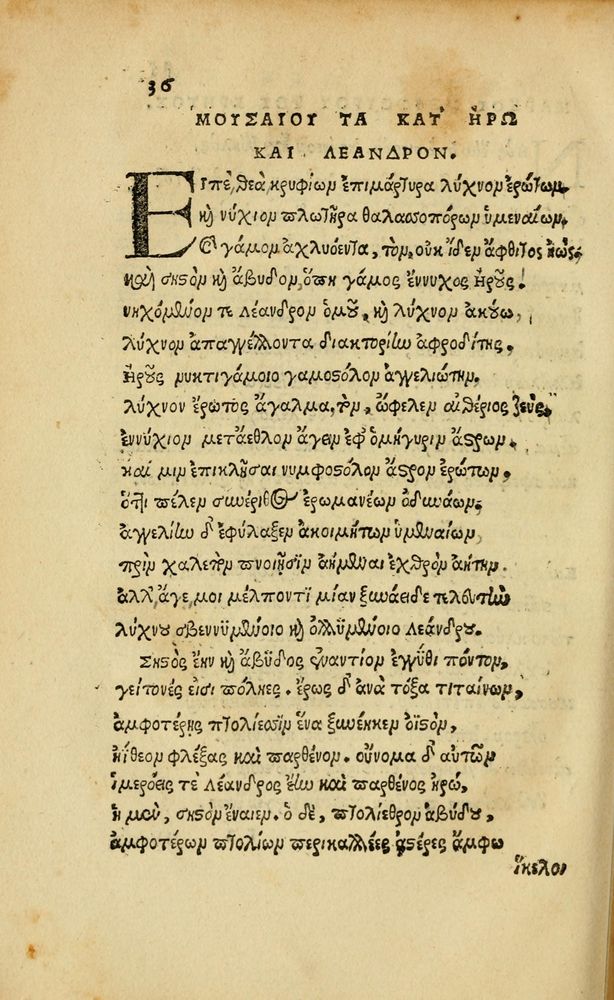 36
ΜΟΥΣΑΙΟΥ ΤΑ ΚΑΘ ΗΡΩ
ΚΑΙ ΛΕΑΝΔΡΟΝ.
Εἰπὲ, θεὰ, κρυφίων ἐπιμάρτυρα λύχνον ἐρώτων,
καὶ νύχιον πλωτῆρα θαλασσοπόρων ὑμεναίων,
καὶ γάμον ἀχλυόεντα, τὸν οὐκ ἴδεν ἄφθιτος ἠὼς,
καὶ σηστὸν καὶ ἄβυδον, ὅπη γάμος ἔννυχος ἡροῦς!
νηχόμενόν τε λέανδρον ὁμοῦ, καὶ λύχνον ἀκούω,
λύχνον ἀπαγγέλλοντα διακτορίην ἀφροδίτης,
ἡροῦς νυκτιγάμοιο γαμοστόλον ἀγγελιώτην,
λύχνον ἔρωτος ἄγαλμα, τὸν, ὤφελεν αἰθέριος ζεὺς,
ἐννύχιον μετάεθλον ἄγειν ἐφ ὁμήγυριν ἄστρων,
καί μιν ἐπικλῆσαι νυμφοστόλον ἄστρον ἐρώτων,
ὅττι πέλεν συνέριθος ἐρωμανέων ὀδυνάων,
ἀγγελίην δ' ἐφύλαξεν ἀκοιμήτων ὑμεναίων,
πρὶν χαλεπὸν πνοιῇσιν ἀήμεναι ἐχθρὸν ἀήτην.
ἀλλ' ἄγε, μοι μέλποντι μίαν ξυνάειδε τελευτὴν
λύχνου σβεννυμένοιο καὶ ὀλλυμένοιο λεάνδρου.
Σηστὸς ἔην καὶ ἄβυδος ἐναντίον ἐγγύθι πόντου,
γείτονές εἰσι πόληες. ἔρως δ' ἀνὰ τόξα τιταίνων,
ἀμφοτέρῃς πτολίεσσιν ἕνα ξυνέηκεν ὀϊστὸν,
ἠίθεον φλέξας καὶ παρθένον. οὔνομα δ' αὐτῶν
ἱμερόεις τὲ λέανδρος ἔην καὶ παρθένος ἡρώ,
ἡ μὲν, σηστὸν ἔναιεν. ὁ δὲ, πτολίεθρον ἀβύδου,
ἀμφοτέρων πτολίων περικαλλέες ἀστέρες ἄμφω
ἴκελοι